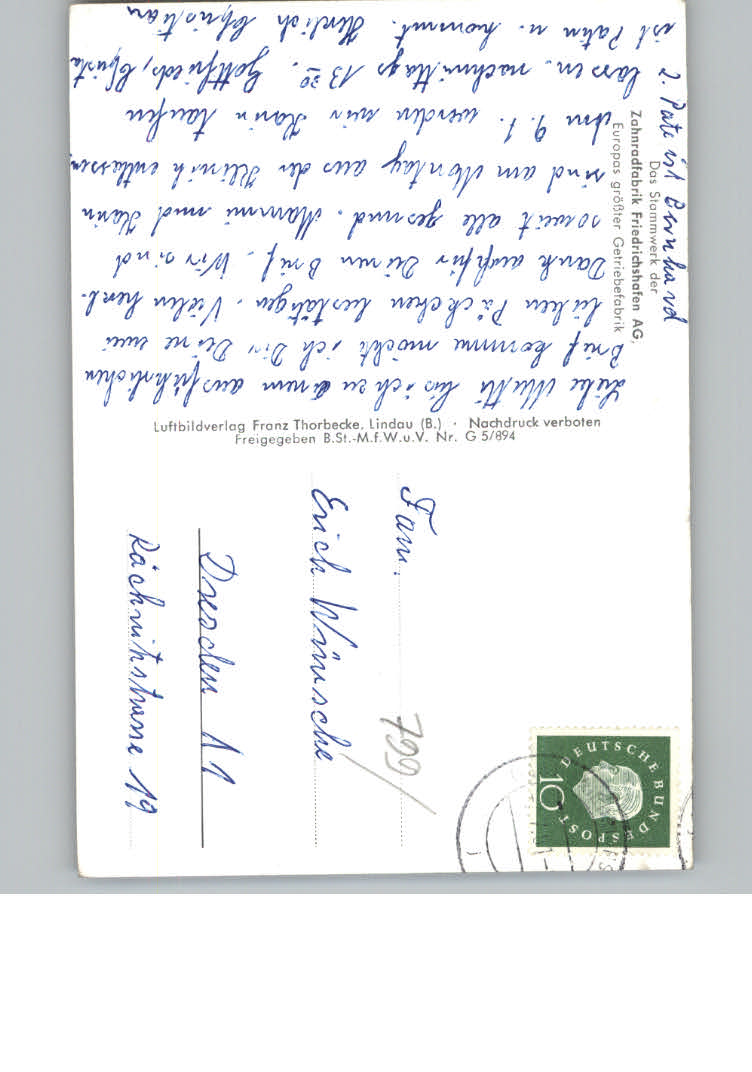 Das Stammwerk der
Zahnradfabrik Friedrichshafen AG,
Europas größter Getriebefabrik
Liebe Mutti bis ich zu einem ausführlichen
Brief komme möcht ich Dir Deine zwei
lieben Päckchen bestätigen. Vielen herzl.
Dank auch für Deinen Brief. Wir sind
soweit alle gesund. Mammi und Karin
sind am Montag aus der Klinik entlassen.
Am 9.1. werden wir Karin taufen
lassen. nachmittags 13³⁰. Gottfrieds, Christa
ist Patin u. kommt. Herzlich Christian
2. Pate ist Bernhard
Luftbildverlag Franz Thorbecke, Lindau (B.) · Nachdruck verboten
Freigegeben B.St.-M.f.W.u.V. Nr. G 5/894
Fam.
Erich Wünsche
Dresden A1
Räcknitzstrasse 19
799/
DEUTSCHE BUNDESPOST
10